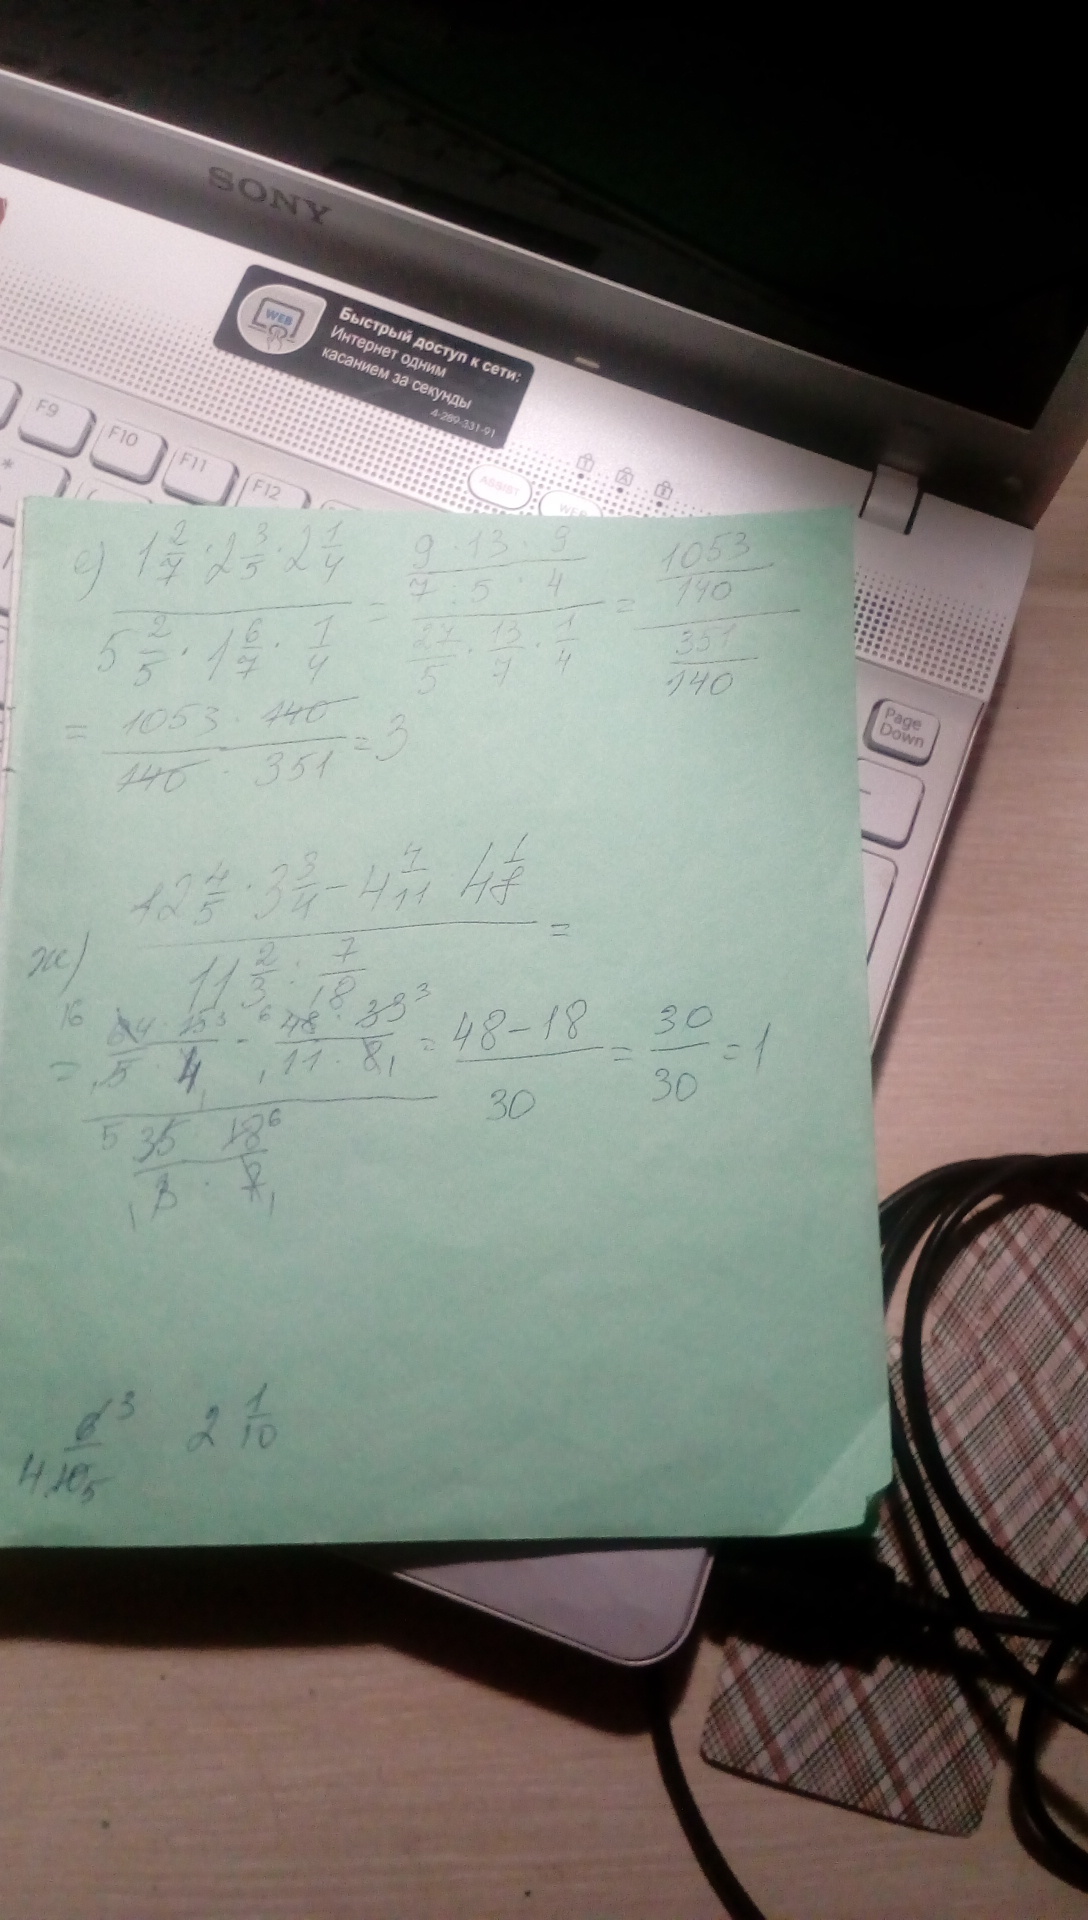 SONY
WEB
Быстрый доступ к сети:
Интернет одним
касанием за секунды
4-289-331-91
F9
F10
F11
F12
ASSIST
WEB
Page
Down
е) (1 2/7 · 2 3/5 · 2 1/4) / (5 2/5 · 1 6/7 · 1/4) = ((9 · 13 · 9)/(7 · 5 · 4)) / (27/5 · 13/7 · 1/4) = (1053/140) / (351/140)
= (1053 · 140)/(140 · 351) = 3
ж) (12 4/5 · 3 3/4 - 4 4/11 · 4 1/8) / (11 2/3 : 7/18) =
= ((64 · 15)/(5 · 4) - (48 · 33)/(11 · 8)) / ((35 · 18)/(3 · 7)) = (48 - 18)/30 = 30/30 = 1
4 6/10 3 5 2 1/10